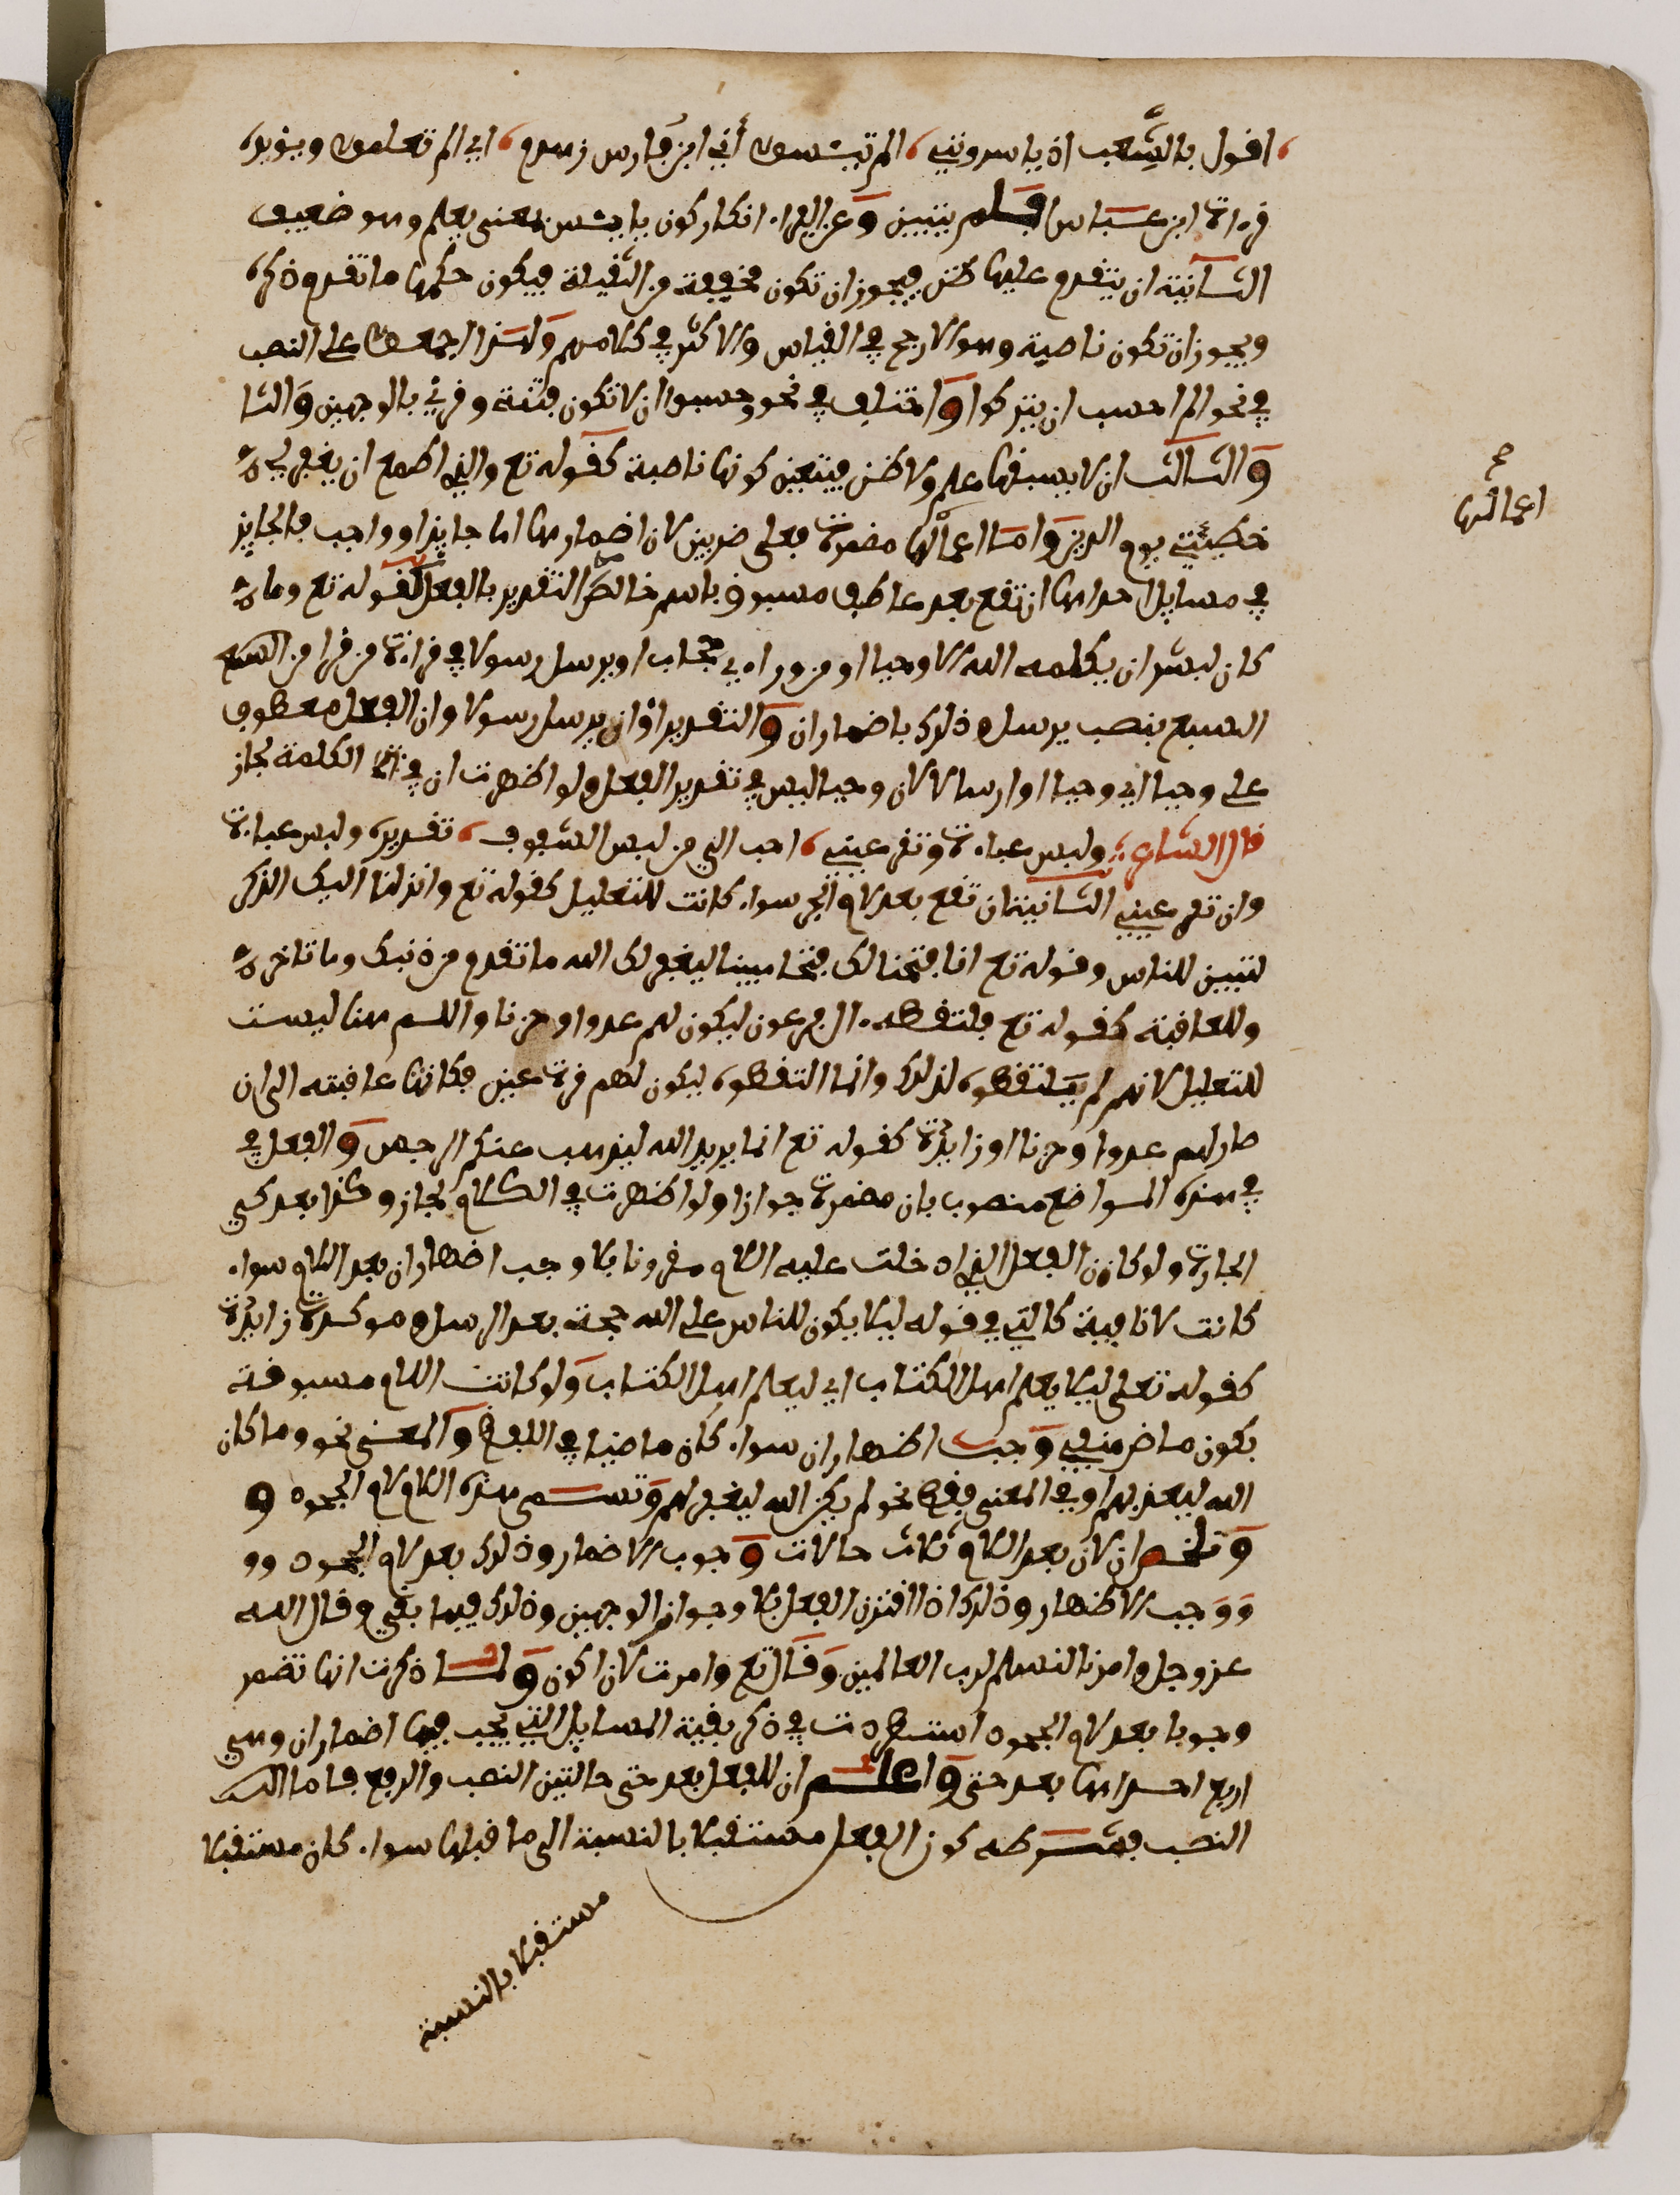 اقول بالشعب اذ ياسرونني، الم تيئسوا أني ابن فارس زهدم، اي الم تعلموا ويؤيده
قراة ابن عباس افلم يتبين وعن الفراء انكار كون ييئس بمعنى يعلم وهو ضعيف
الثانية ان يتقدم عليها ظن فيجوز ان تكون مخففة من الثقيلة فيكون حكمها ما تقدم ذكره
ويجوز ان تكون ناصبة وهو الارجح في القياس والاكثر في كلامهم ولهذا اجمعوا على النصب
في نحو الم احسب ان يتركوا واختلف في نحو وحسبوا ان لا تكون فتنة وقرئ بالوجهين والثا
والثالث ان لا يسبقها علم ولا ظن فيتعين كونها ناصبة كقوله تع والذي اطمع ان يغفر لي
خطيئتي يوم الدين واما اعمالها مضمرة فعلى ضربين لان اضمارها اما جايز او واجب فالجايز
في مسايل احداها ان تقع بعد عاطف مسبوق باسم خالص التقدير بالفعل كقوله تع وما
كان لبشر ان يكلمه الله الا وحيا او من وراءي حجاب او يرسل رسولا في قراءة من قرا من السبع
السبع بنصب يرسل وذلك باضمار ان والتقدير او ان يرسل رسولا وان الفعل معطوف
على وحيا اي وحيا او ارسالا لان وحيا ليس في تقدير الفعل ولو اظهرت ان في الكلمة لجاز
قال الشاعر: ولبس عباءة وتقر عيني، احب الي من لبس الشفوف، تقديره ولبس عباءة
وان تقر عيني الثانية ان تقع بعد لام الجر سواء كانت للتعليل كقوله تع وانزلنا اليك الذكر
لتبين للناس وقوله تع انا فتحنا لك فتحا مبينا ليغفر لك الله ما تقدم من ذنبك وما تاخر
وللعاقبة كقوله تع فالتقطه ءال فرعون ليكون لهم عدوا وحزنا واللام هنا ليست
للتعليل لانهم لم يلتقطوه لذلك وانما التقطوه ليكون لهم قرة عين فكانها عاقبته الى ان
صار لهم عدوا وحزنا او زايدة كقوله تع انما يريد الله ليذهب عنكم الرجس والفعل في
في هذه المواضع منصوب بان مضمرة جوازا ولو اظهرت في الكلام لجاز وكذا بعد كي
الجارة ولو كان الفعل الذي دخلت عليه اللام مقرونا بلا وجب اضهار ان بعد اللام سواء
كانت لا نافية كالتي في قوله ليلا يكون للناس على الله حجة بعد الرسل او موكدة زايدة
كقوله تعلى ليلا يعلم اهل الكتاب اي ليعلم اهل الكتاب ولو كانت اللام مسبوقة
بكون ماض منفي وجب اضمار ان سواء كان ماضيا في اللفظ والمعنى نحو وما كان
الله ليعذبهم او في المعنى فقط نحو لم يكن الله ليغفر لهم وتسمى هذه اللام لام الجحود و
وتلخص ان لان بعد اللام ثلاث حالات وجوب الاضمار وذلك بعد لام الجحود وو
ووجب الاظهار وذلك اذا اقترن الفعل بلا وجواز الوجهين وذلك فيما بقي وقال الله
عز وجل وامرنا لنسلم لرب العالمين وقال تع وامرت لان اكون ولما ذكرت انها تضمر
وجوبا بعد لام الجحود استطردت في ذكر بقية المسايل التي يجب فيها اضمار ان وهي
اربع احداها بعد حتى واعلم ان للفعل بعد حتى حالتين النصب والرفع فاما النـ
النصب فشرطه كون الفعل مستقبلا بالنسبة الى ما قبلها سواء كان مستقبلا
مستقبلا بالنسبة
صح
اعمالها